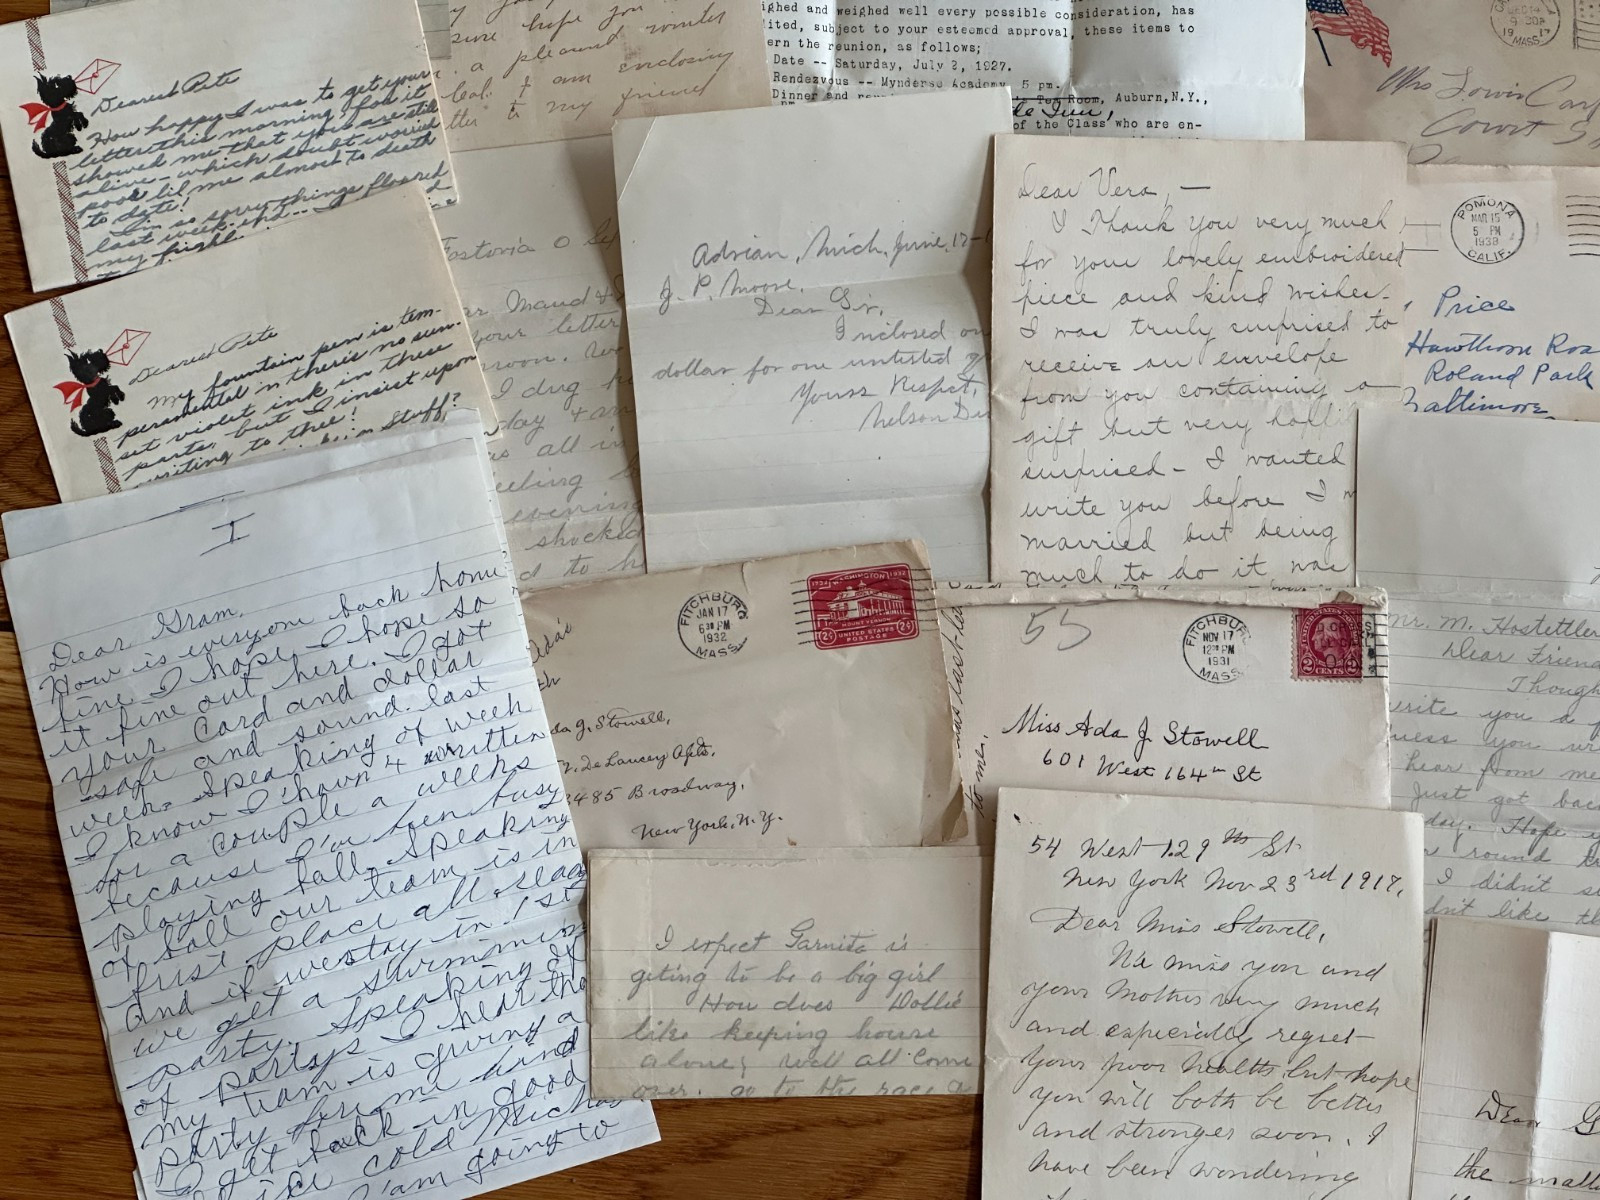 Dearest Pete
How happy I was to get your
letter this morning, for it
showed me that you are still
alive - which doubt worried
poor lil me almost to death
to date!
I'm so sorry things floored
last week-end --
my fight.
Dearest Pete
My fountain pen is tem-
peramental 'n there's no sun-
set violet ink in these
parts, but I insist upon
writing to thee!
Stuff?
sure hope you
a pleasant winter
I am enclosing
to my friend
ighed and weighed well every possible consideration, has
ited, subject to your esteemed approval, these items to
ern the reunion, as follows;
Date -- Saturday, July 2, 1927.
Rendezvous -- Mynderse Academy 5 pm.
Dinner and
Tea Room, Auburn, N.Y.,
de Inn,
of the Class who are en-
9 30P
19 17
MASS.
Mrs Lewis
Court S
Fostoria O
Maud &
your letter
noon. We
I dug
day &
as all in
eeling
evening
shocked
d to h
Adrian, Mich, June, 12-1
J. P. Moore,
Dear Sir,
I inclosed on
dollar for one untested
Yours Respect,
Nelson
Dear Vera, —
I Thank you very much
for your lovely embroidered
piece and kind wishes.
I was truly surprised to
receive an envelope
from you containing a
gift but very happily
surprised - I wanted
write you before I
married but being
much to do it was
POMONA
MAR 15
5 PM
1939
CALIF.
Price
Hawthorn Roa
Roland Park
Baltimore
I
Dear Gram,
How is everyone back home
fine I hope. I hope so
it fine out here. I got
your card and dollar
safe and sound last
week. Speaking of week
I know I haven't written
for a couple a weeks
because I'am been busy
playing ball. Speaking
of ball our team is in
first place all seas
and if we stay in 1st
we get a swimming
party. Speaking of
of partys I hear tha
my team is giving a
party for me
I get back in good
ice cold
I'am going to
FITCHBURG
JAN 17
6 30 PM
1932
MASS.
1732 WASHINGTON 1932
MOUNT VERNON
2¢ UNITED STATES 2¢
POSTAGE
da J. Stowell,
De Lancey Apts.
3485 Broadway,
New York, N. Y.
last
to me.
55
FITCHBURG
NOV 17
12 30 PM
1931
MASS.
2 CENTS 2
Miss Ada J Stowell
601 West 164th St
Mr. M. Hostettler
Dear Friend
Though
write you a
guess you
hear from me
Just got bac
day. Hope y
round
I didn't s
dn't like th
I expect Garnita is
geting to be a big girl
How does Dollie
like keeping house
alone; well all come
over. go to the race
54 West 129th St.
New York Nov 23rd 1917.
Dear Miss Stowell,
We miss you and
your Mother very much
and especially regret
your poor health, but hope
you will both be better
and stronger soon. I
have been wondering
Dear G
the matt